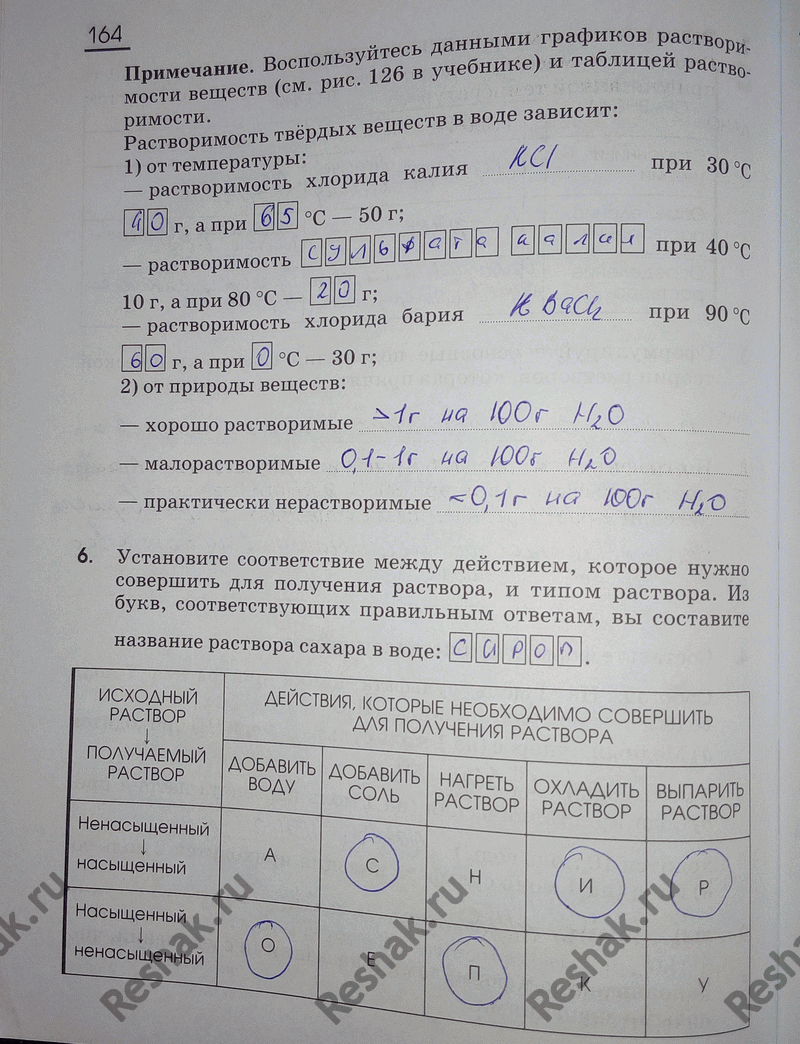 164
Примечание. Воспользуйтесь данными графиков раствори-
мости веществ (см. рис. 126 в учебнике) и таблицей раство-
римости.
Растворимость твёрдых веществ в воде зависит:
1) от температуры:
— растворимость хлорида калия KCl при 30 °С
40 г, а при 65 °С — 50 г;
— растворимость сульфата калия при 40 °С
10 г, а при 80 °С — 20 г;
— растворимость хлорида бария BaCl2 при 90 °С
60 г, а при 0 °С — 30 г;
2) от природы веществ:
— хорошо растворимые >1г на 100г H2O
— малорастворимые 0,1-1г на 100г H2O
— практически нерастворимые <0,1г на 100г H2O
6. Установите соответствие между действием, которое нужно
совершить для получения раствора, и типом раствора. Из
букв, соответствующих правильным ответам, вы составите
название раствора сахара в воде: сироп.
ИСХОДНЫЙ РАСТВОР ↓ ПОЛУЧАЕМЫЙ РАСТВОР
ДЕЙСТВИЯ, КОТОРЫЕ НЕОБХОДИМО СОВЕРШИТЬ
ДЛЯ ПОЛУЧЕНИЯ РАСТВОРА
ДОБАВИТЬ ВОДУ
ДОБАВИТЬ СОЛЬ
НАГРЕТЬ РАСТВОР
ОХЛАДИТЬ РАСТВОР
ВЫПАРИТЬ РАСТВОР
Ненасыщенный ↓ насыщенный
А С Н И Р
Насыщенный ↓ ненасыщенный
О Е П К У
Reshak.ru
Reshak.ru
Reshak.ru